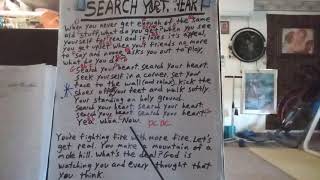 SEARCH YOUR HEART
When you never get enough of the same
old stuff, what do you get? When you see
your self for real and it loses its appeal,
you get upset when your friends no more
to say and none asks you out to play
what do you do?
Search your heart. Search your heart.
seek your self in a corner. Set your
face to the wall (and relax), kick the
shoes off your feet and walk softly.
Your standing on holy ground.
Search your heart. Search your heart.
search your heart. search your heart
Yea whoa. Now
You're fighting fire with more fire. Let's
get real. You make a mountain of a
mole hill. What's the deal? God is
watching you and every thought that
you think.